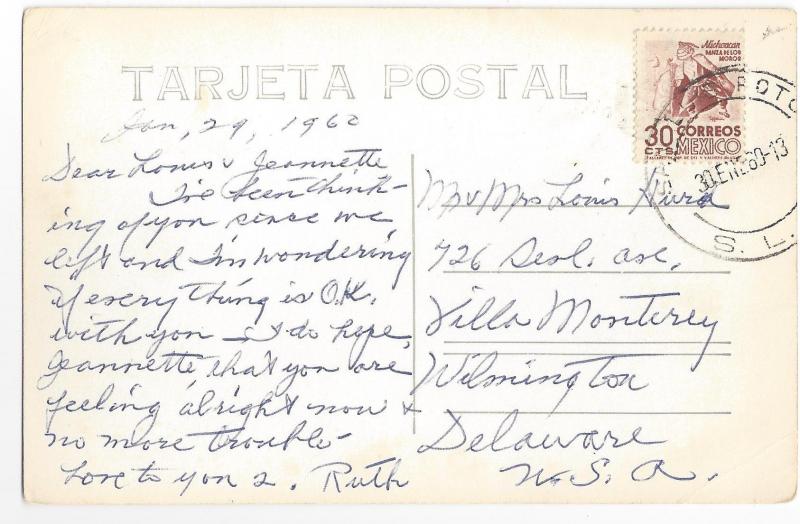 TARJETA POSTAL
Michoacan
DANZA DE LOS
MOROS
30 CORREOS
CTS. MEXICO
POTO
30 ENE 60-13
S. L.
Jan, 29, 1960
Dear Louis & Jeannette
I've been think-
ing of you since we
left and I'm wondering
if everything is O.K.
with you – I do hope,
Jeannette that you are
feeling alright now &
no more trouble –
Love to you 2. Ruth
Mr & Mrs Louis Hurd
726 ave,
Villa Monterey
Wilmington
Delaware
U.S.A.